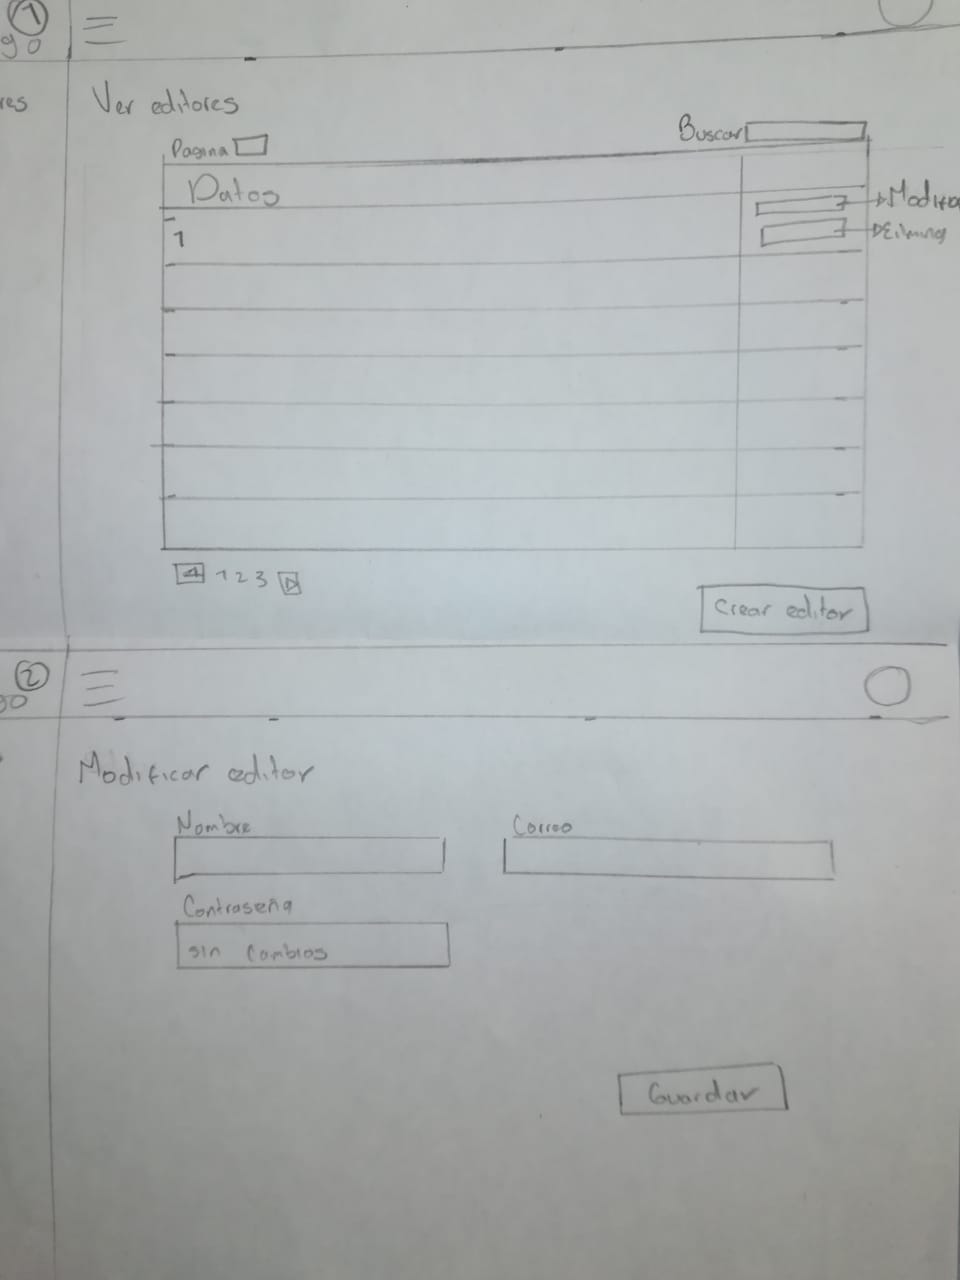 1
go
res
Ver editores
Pagina
Buscar
Datos
1
Eliminar
1 2 3
Crear editor
2
go
Modificar editor
Nombre
Correo
Contraseña
sin cambios
Guardar